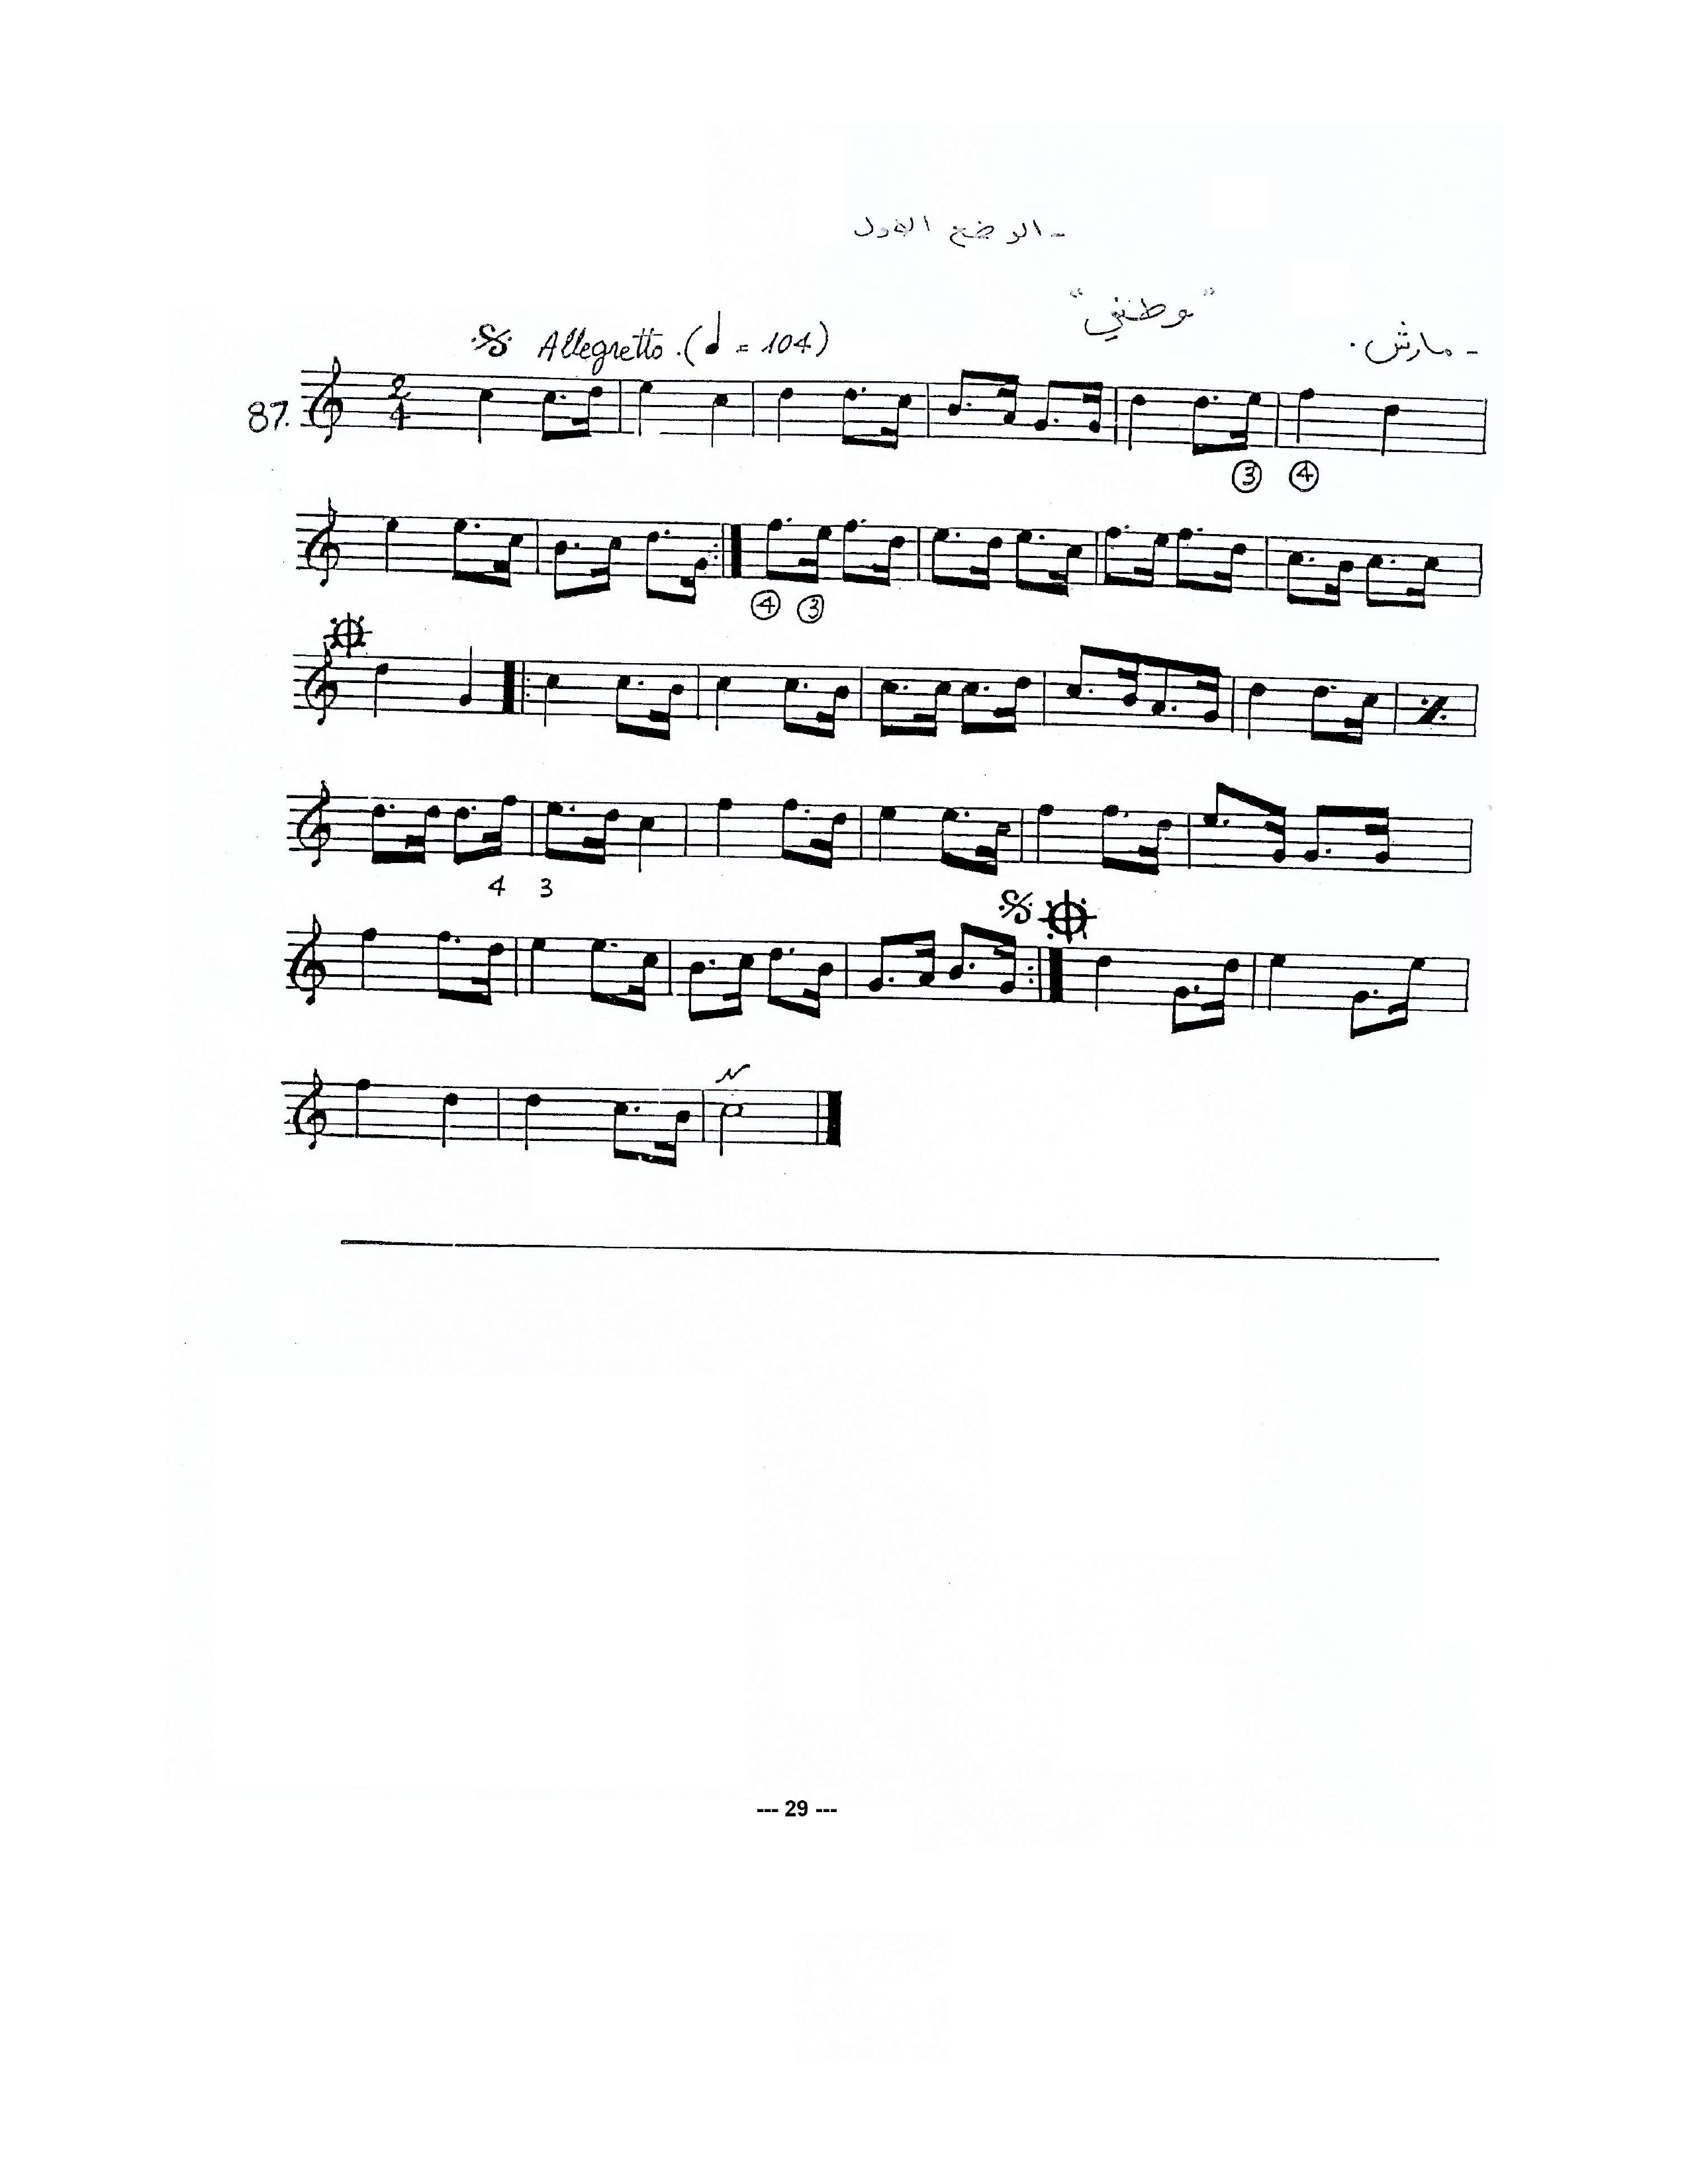 - الوضع الاول
- مارش. "وطني"
Allegretto. (♩ = 104)
87.
2
4
3 4
4 3
4 3
--- 29 ---